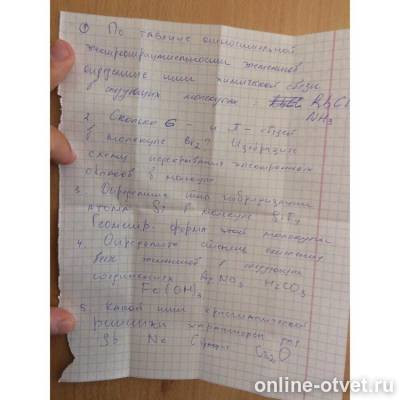 1 По таблице относительной
электроотрицательности элементов
типы химической связи
в следующих молекулах: RbCl
NH3
2. Сколько б - и π - связей
в молекуле Br2? Изобразите
схему перекрывания электронных
облаков в молекуле
3. Определите тип гибридизации
атома в молекуле
Геометр. форма этой молекулы
4. Определите степень окисления
всех элементов в следующих
соединениях AgNO3 H2CO3
Fe(OH)3
5. Какой тип кристаллической
решетки характерен для
Na Cs2O
online-otvet.ru